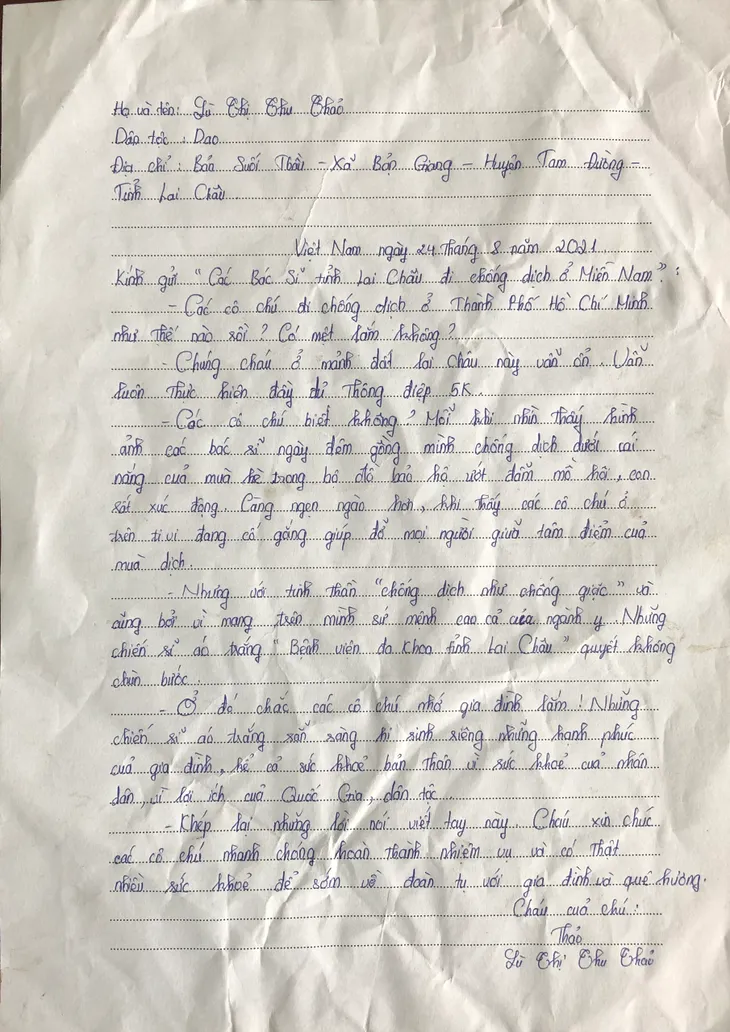 Họ và tên: Lù Thị Thu Thảo
Dân tộc: Dao
Địa chỉ: Bản Suối Thầu - Xã Bản Giang - Huyện Tam Đường -
Tỉnh Lai Châu
Việt Nam ngày 24 tháng 8 năm 2021
Kính gửi "Các Bác Sĩ tỉnh Lai Châu đi chống dịch ở Miền Nam":
- Các cô chú đi chống dịch ở Thành Phố Hồ Chí Minh
như thế nào rồi? Có mệt lắm không?
- Chúng cháu ở mảnh đất Lai Châu này vẫn ổn. Vẫn
luôn thực hiện đầy đủ Thông điệp 5K.
- Các cô chú biết không? Mỗi khi nhìn thấy hình
ảnh các bác sĩ ngày đêm gồng mình chống dịch dưới cái
nắng của mùa hè trong bộ đồ bảo hộ ướt đẫm mồ hôi, con
rất xúc động. Càng nghẹn ngào hơn, khi thấy các cô chú ở
trên ti vi đang cố gắng giúp đỡ mọi người giữa tâm điểm của
mùa dịch.
- Nhưng với tinh thần "chống dịch như chống giặc" và
cũng bởi vì mang trên mình sứ mệnh cao cả của ngành y. Những
chiến sĩ áo trắng "Bệnh viện đa khoa tỉnh Lai Châu" quyết không
chùn bước.
- Ở đó chắc các cô chú nhớ gia đình lắm! Những
chiến sĩ áo trắng sẵn sàng hi sinh riêng những hạnh phúc
của gia đình, kể cả sức khoẻ bản thân vì sức khoẻ của nhân
dân, vì lợi ích của Quốc Gia, dân tộc.
- Khép lại những lời nói viết tay này. Cháu xin chúc
các cô chú nhanh chóng hoàn thành nhiệm vụ và có thật
nhiều sức khoẻ để sớm về đoàn tụ với gia đình và quê hương.
Cháu của chú:
Thảo
Lù Thị Thu Thảo